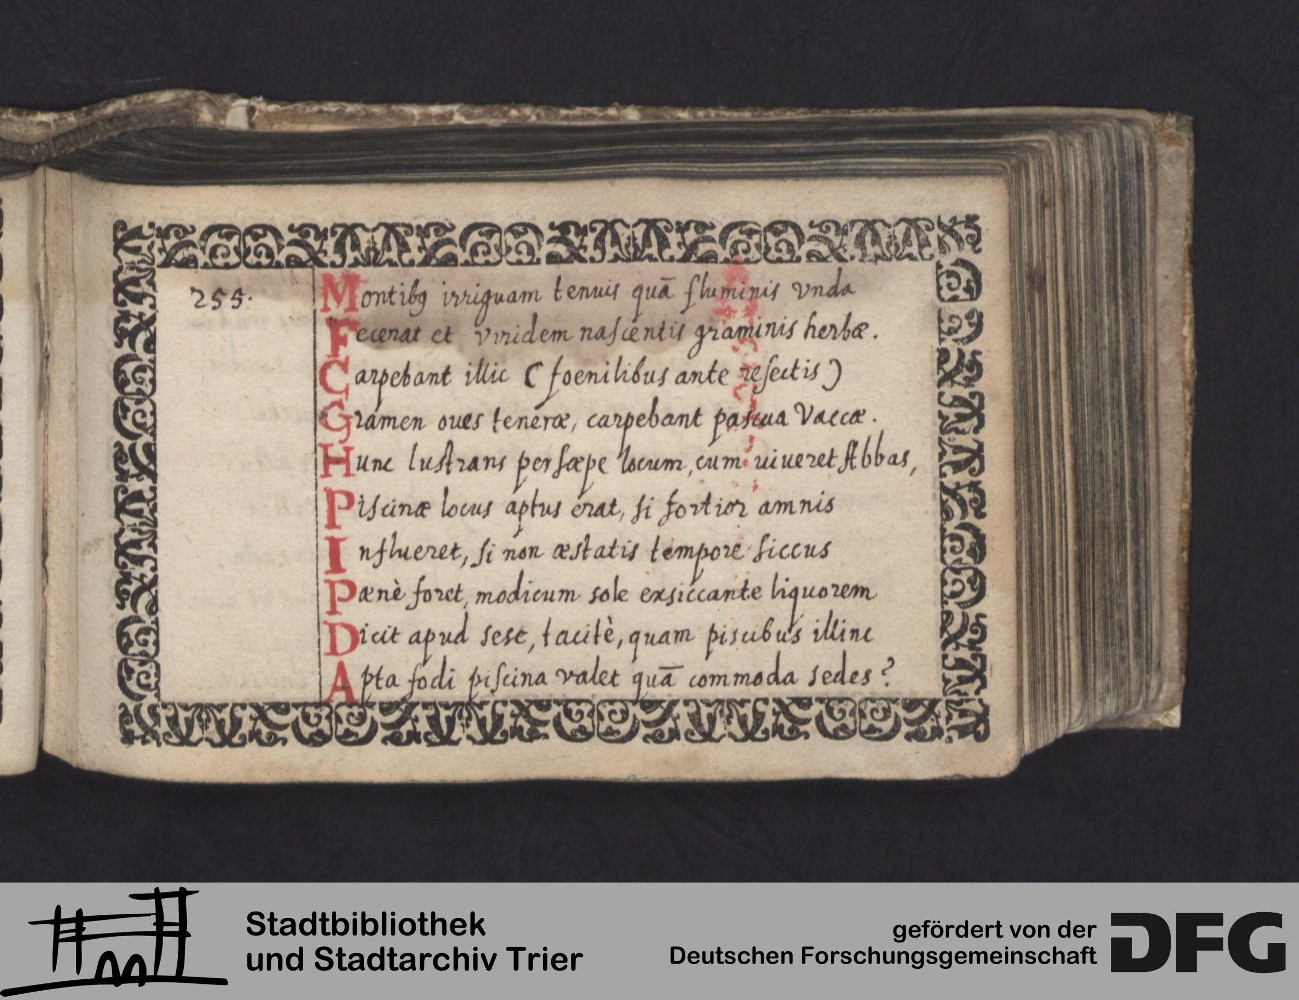 255.
Montibꝰ irriguam tenuis quā fluminis vnda
Fecerat et viridem nascentis graminis herbæ.
Carpebant illic (foenilibus ante refectis)
Gramen oves teneræ, carpebant pascua Vaccæ.
Hunc lustrans persæpe locum, cum viveret Abbas,
Piscinæ locus aptus erat, si fortior amnis
Influeret, si non æstatis tempore siccus
Pænè foret, modicum sole exsiccante liquorem
Dicit apud sese, tacitè, quam piscibus illinc
Apta fodi piscina valet quā commoda sedes?
Stadtbibliothek
und Stadtarchiv Trier
gefördert von der
Deutschen Forschungsgemeinschaft
DFG